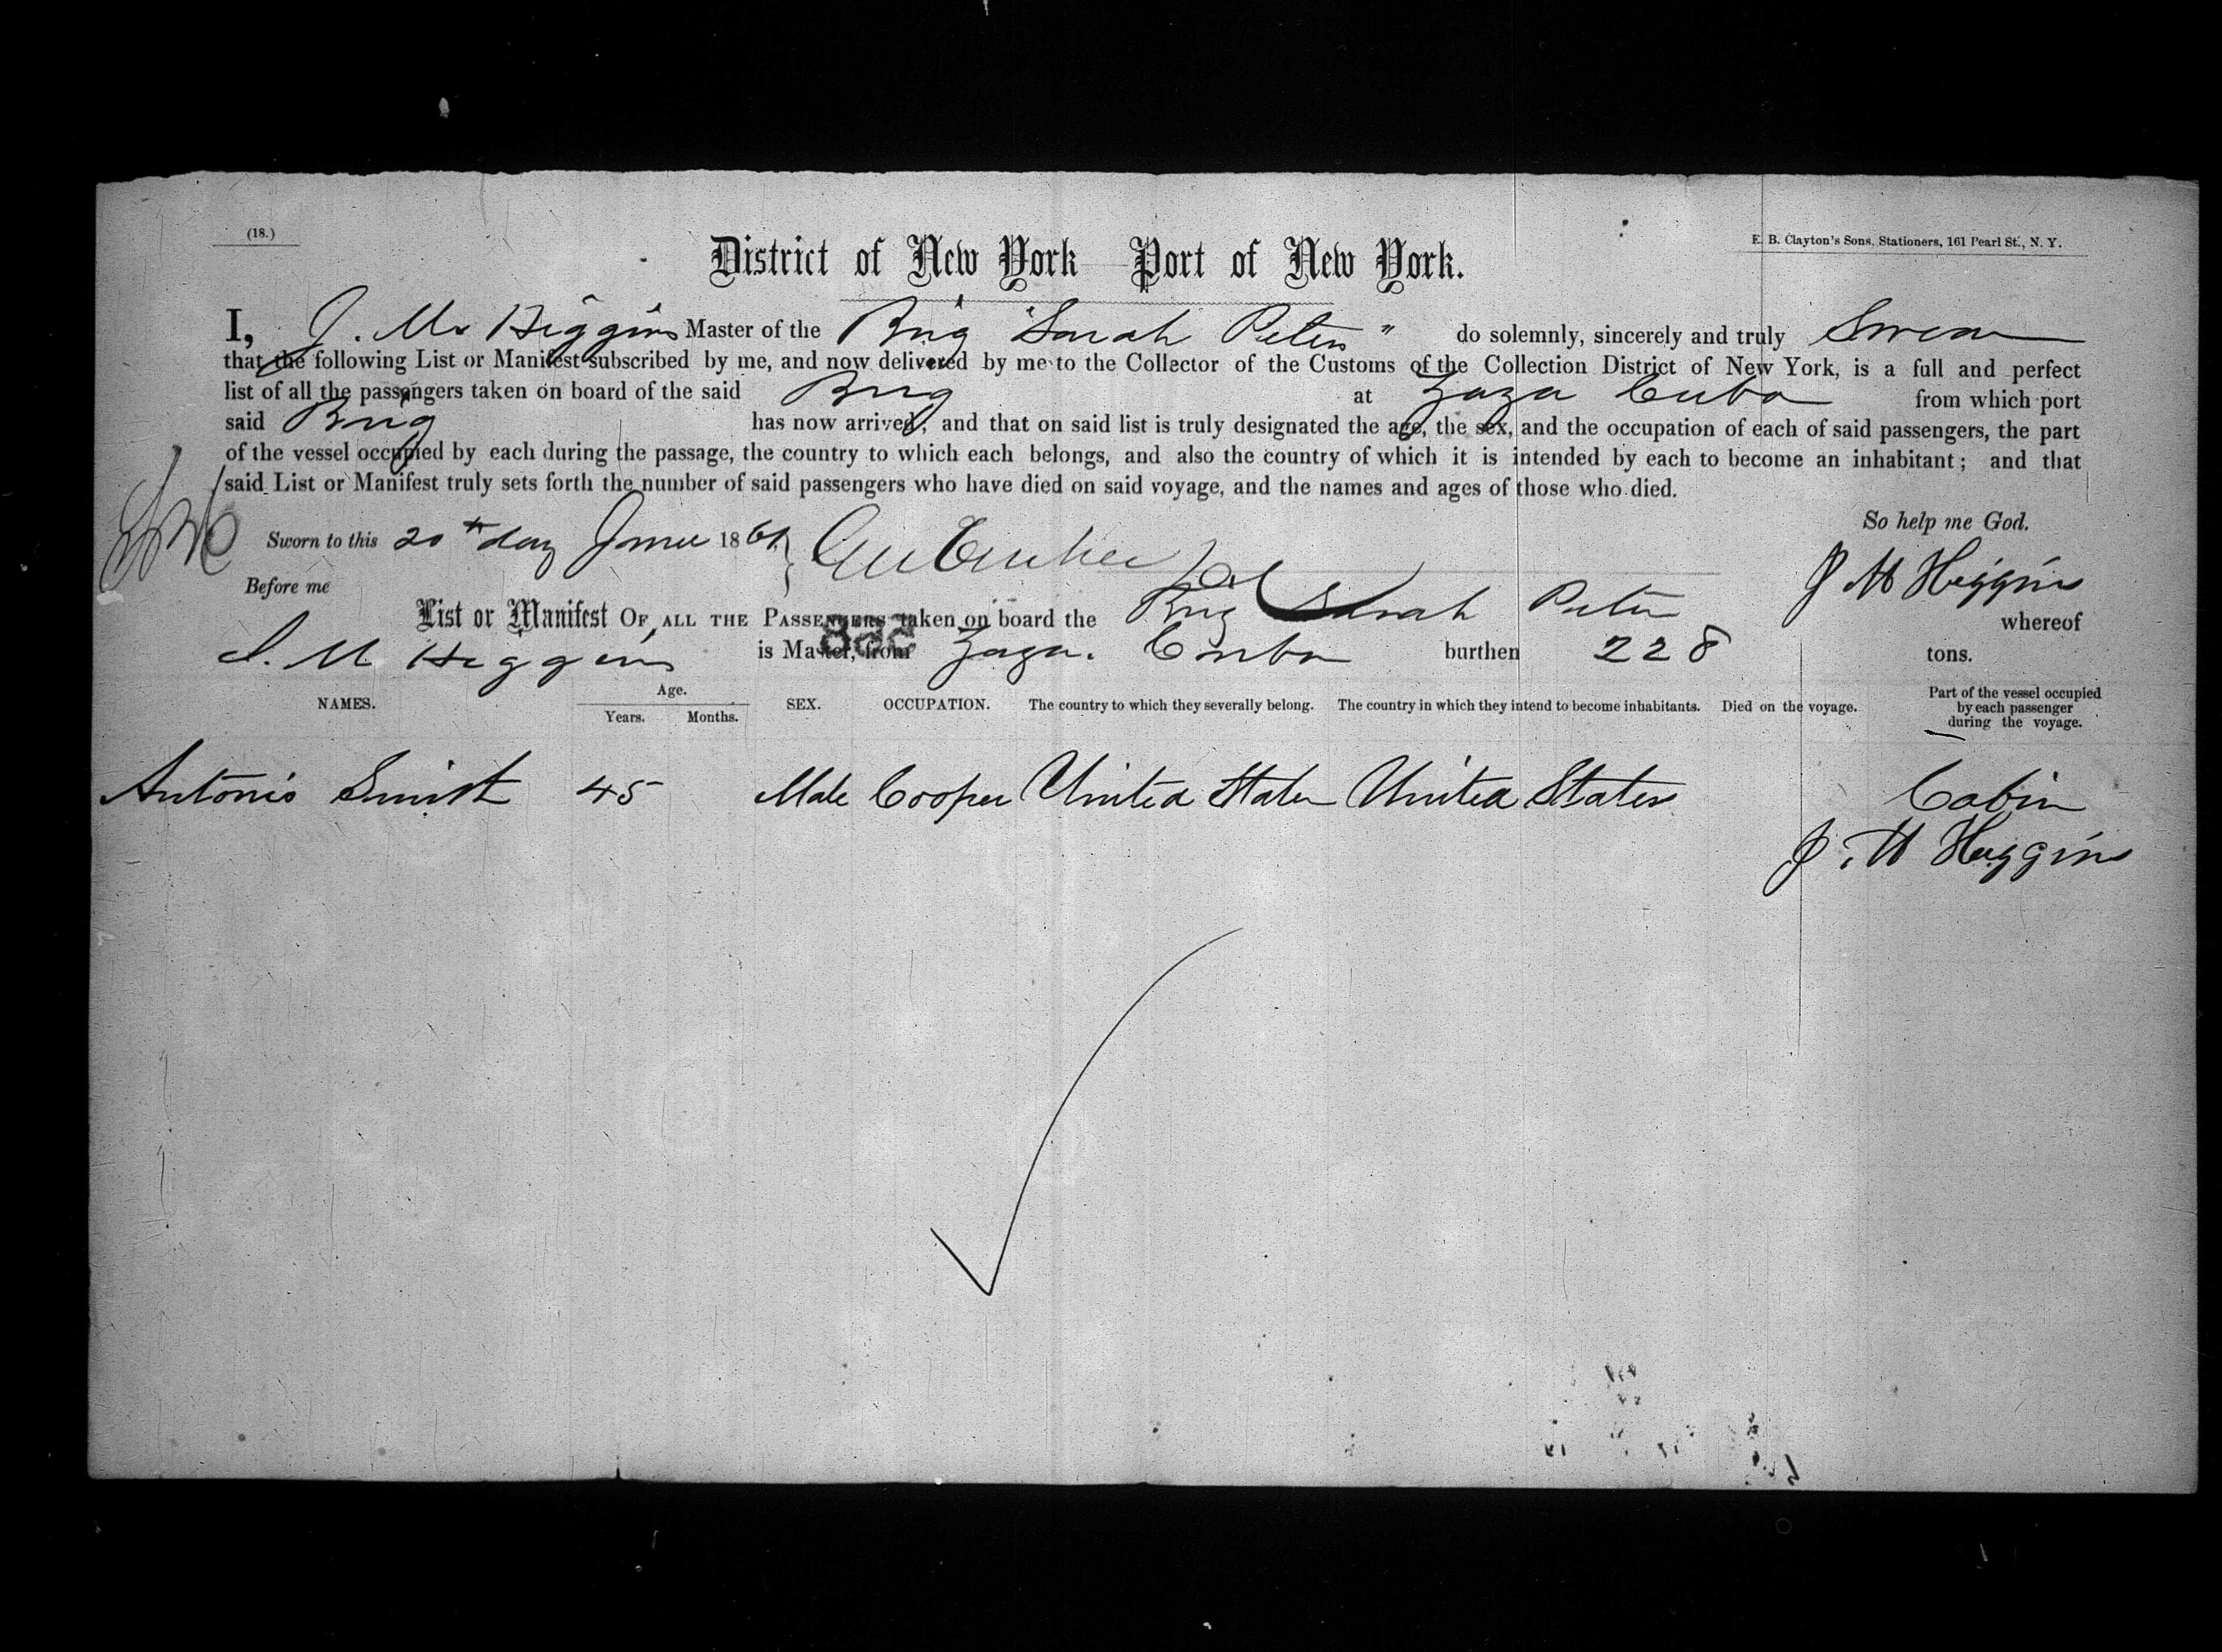 (18.)
E. B. Clayton's Sons, Stationers, 161 Pearl St., N. Y.
District of New York Port of New York.
I, J. M. Higgins Master of the Brig "Sarah Peters" do solemnly, sincerely and truly Swear
that the following List or Manifest subscribed by me, and now delivered by me to the Collector of the Customs of the Collection District of New York, is a full and perfect
list of all the passengers taken on board of the said Brig at Zaza Cuba from which port
said Brig has now arrived, and that on said list is truly designated the age, the sex, and the occupation of each of said passengers, the part
of the vessel occupied by each during the passage, the country to which each belongs, and also the country of which it is intended by each to become an inhabitant; and that
said List or Manifest truly sets forth the number of said passengers who have died on said voyage, and the names and ages of those who died.
So help me God.
Sworn to this 20th day June 1861
J M Higgins
Before me
List or Manifest OF ALL THE PASSENGERS taken on board the Brig Sarah Peters whereof
J. M Higgins is Master, from Zaza. Cuba burthen 228 tons.
NAMES. Age. Years. Months. SEX. OCCUPATION. The country to which they severally belong. The country in which they intend to become inhabitants. Died on the voyage. Part of the vessel occupied by each passenger during the voyage.
Antonio Smith 45 Male Cooper United States United States Cabin
J. M Higgins